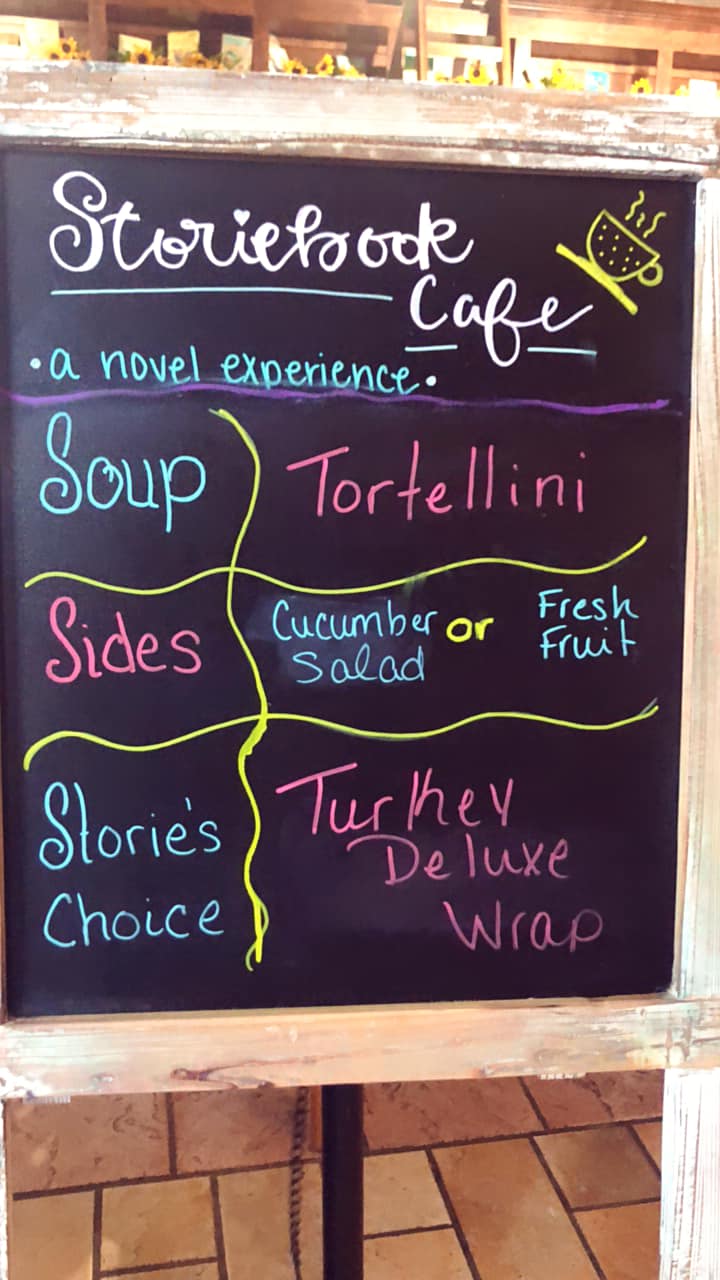 Storiebook
Cafe
•a novel experience•
Soup
Tortellini
Sides
Cucumber or Fresh
Salad Fruit
Storie's
Choice
Turkey
Deluxe
Wrap